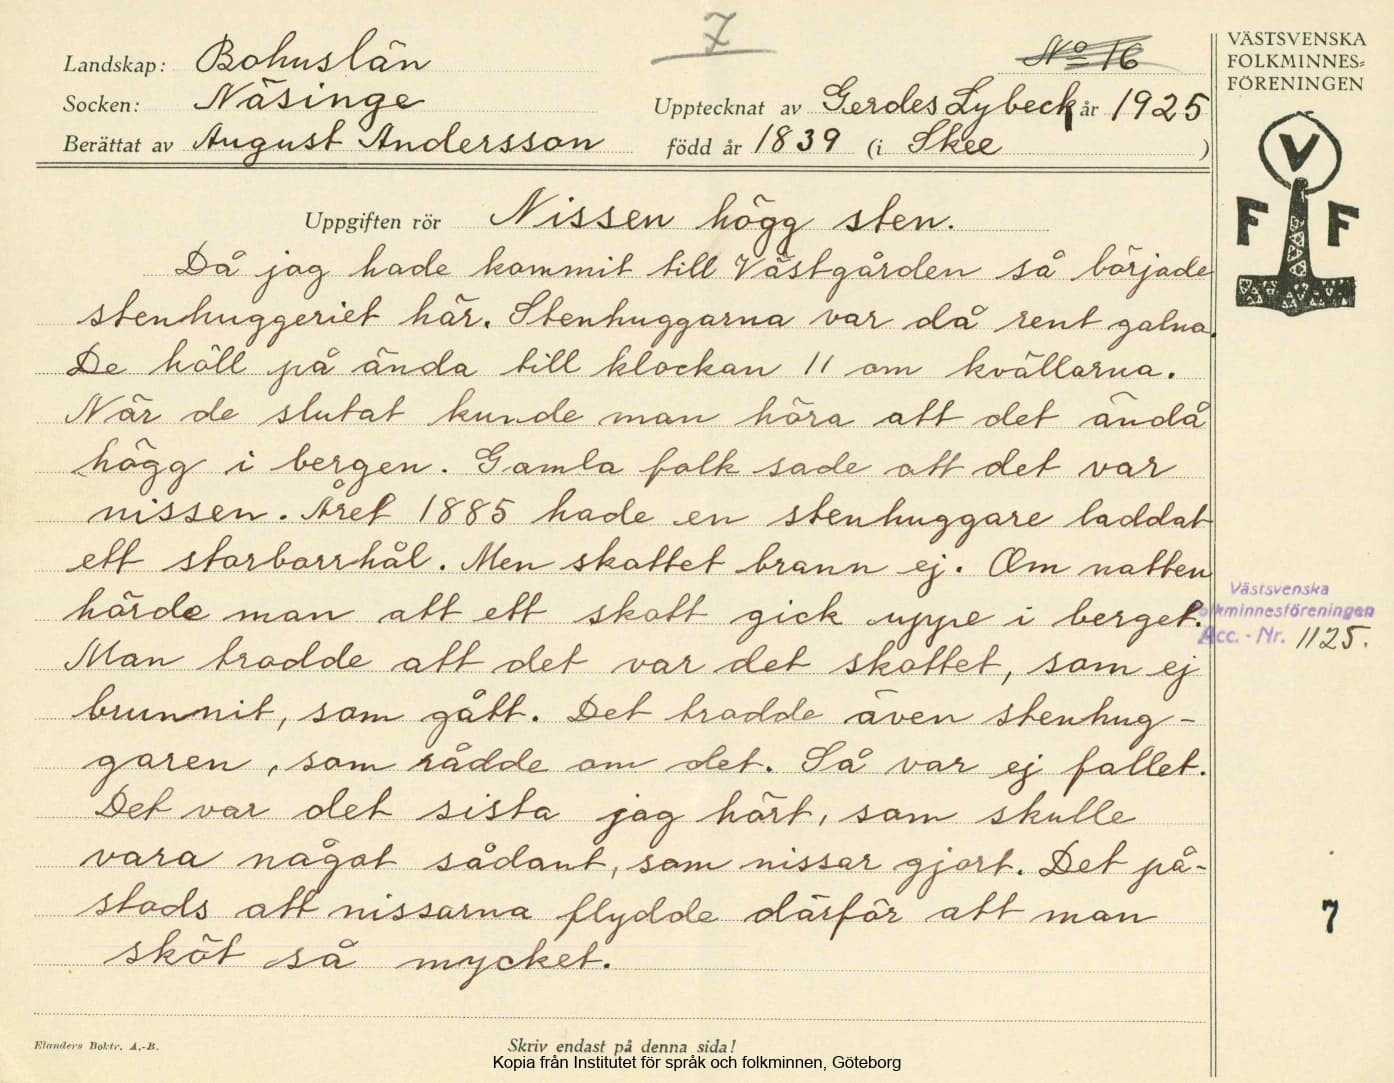 7
No 16
Landskap: Bohuslän
Socken: Näsinge
Upptecknat av Gerdes Lybeck år 1925
Berättat av August Andersson född år 1839 (i Skee )
VÄSTSVENSKA
FOLKMINNES=
FÖRENINGEN
V
F F
Uppgiften rör Nissen högg sten.
Då jag hade kommit till Västgården så började
stenhuggeriet här. Stenhuggarna var då rent galna.
De höll på ända till klockan 11 om kvällarna.
När de slutat kunde man höra att det ändå
högg i bergen. Gamla folk sade att det var
nissen. Året 1885 hade en stenhuggare laddat
ett storborrhål. Men skottet brann ej. Om natten
hörde man att ett skott gick uppe i berget.
Man trodde att det var det skottet, som ej
brunnit, som gått. Det trodde även stenhug-
garen, som rådde om det. Så var ej fallet.
Det var det sista jag hört, som skulle
vara något sådant, som nissar gjort. Det på-
stods att nissarna flydde därför att man
sköt så mycket.
Västsvenska
Folkminnesföreningen
Acc. - Nr. 1125.
7
Elanders Boktr. A.-B.
Skriv endast på denna sida!
Kopia från Institutet för språk och folkminnen, Göteborg